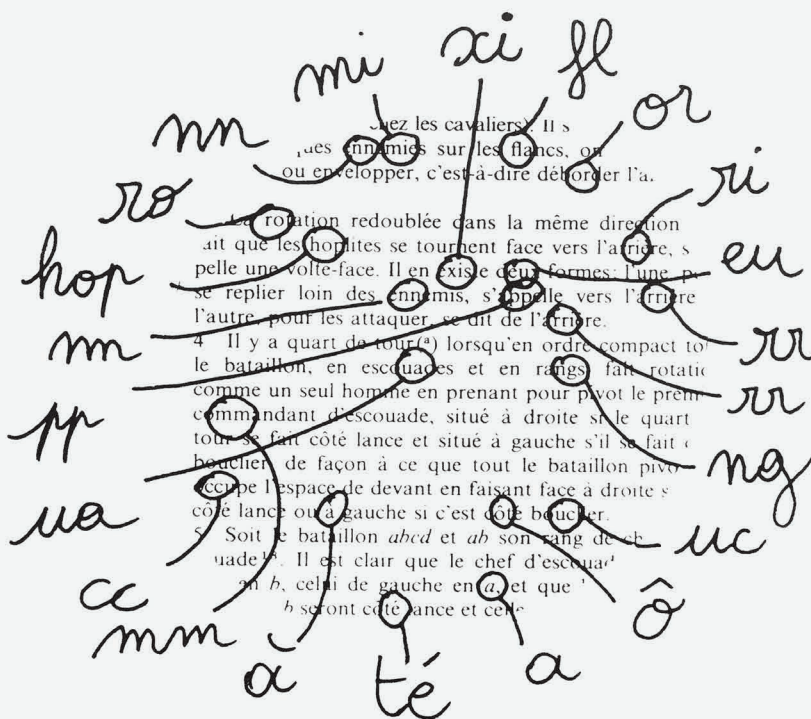 mi xi fl
nn or
ro ri
hop eu
nn rr
pp rr
ua ng
cc uc
mm à té a ô
chez les cavaliers). Il s
ques ennemies sur les flancs, on
ou envelopper, c'est-à-dire déborder l'a.
La rotation redoublée dans la même direction
ait que les hoplites se tournent face vers l'arrière, s
pelle une volte-face. Il en existe deux formes: l'une,
se replier loin des ennemis, s'appelle vers l'arrière
l'autre, pour les attaquer, se dit de l'arrière.
4 Il y a quart de tour(ª) lorsqu'en ordre compact to
le bataillon, en escouades et en rangs, fait rotatio
comme un seul homme en prenant pour pivot le prem
commandant d'escouade, situé à droite si le quart
tour se fait côté lance et situé à gauche s'il se fait
bouclier, de façon à ce que tout le bataillon pivo
occupe l'espace de devant en faisant face à droite s
côté lance ou à gauche si c'est côté bouclier.
5 Soit le bataillon abcd et ab son rang de ch
uade Il est clair que le chef d'escouad
en b, celui de gauche en a, et que
b seront côté lance et celle